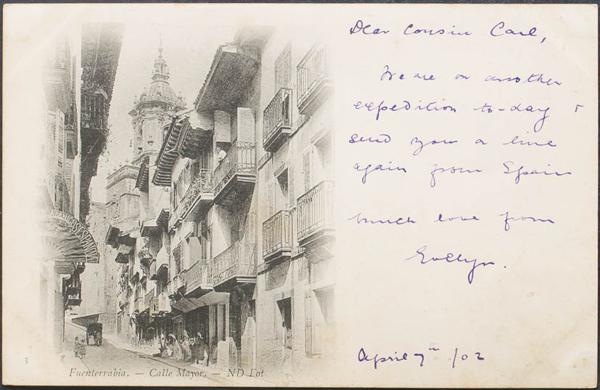 Dear Cousin Carl,
We are on another
expedition to-day &
send you a line
again from Spain
Much love from
Evelyn.
April 7th /02
Fuenterrabia. — Calle Mayor. — ND Fot